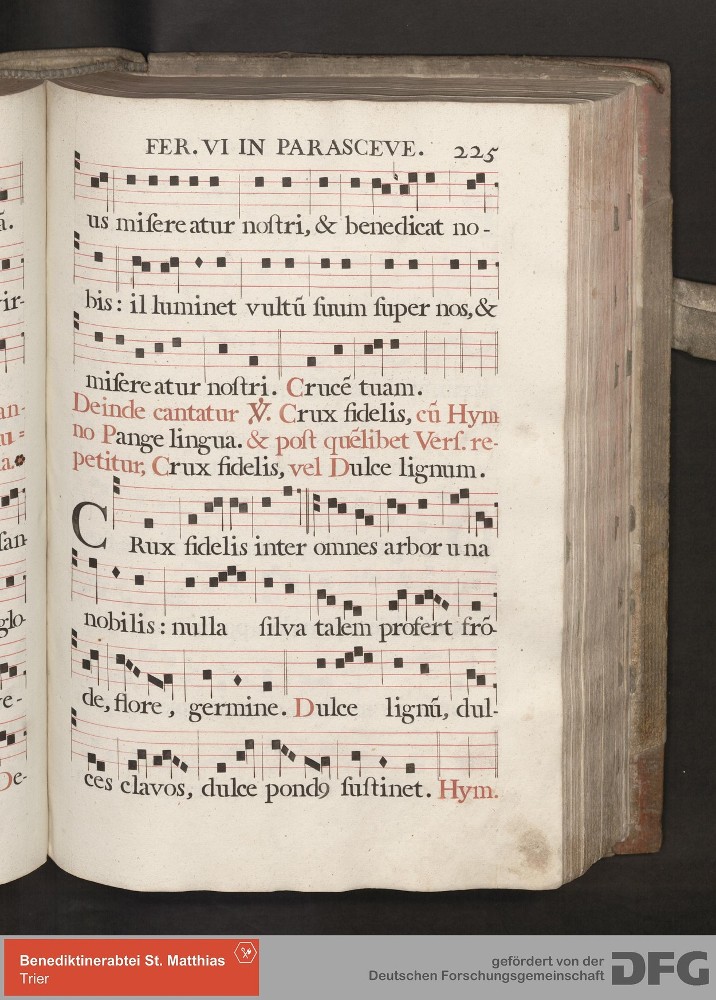 FER. VI IN PARASCEVE. 225
us misereatur nostri, & benedicat no-
bis: illuminet vultū suum super nos, &
misereatur nostri. Crucē tuam.
Deinde cantatur ℣. Crux fidelis, cū Hym
no Pange lingua. & post quēlibet Vers. re-
petitur, Crux fidelis, vel Dulce lignum.
CRux fidelis inter omnes arbor una
nobilis: nulla silva talem profert frō-
de, flore, germine. Dulce lignū, dul-
ces clavos, dulce pondꝯ sustinet. Hym.
ã.
ir-
an-
a.
san-
glo-
e-
De-
Benediktinerabtei St. Matthias
Trier
gefördert von der
Deutschen Forschungsgemeinschaft
DFG